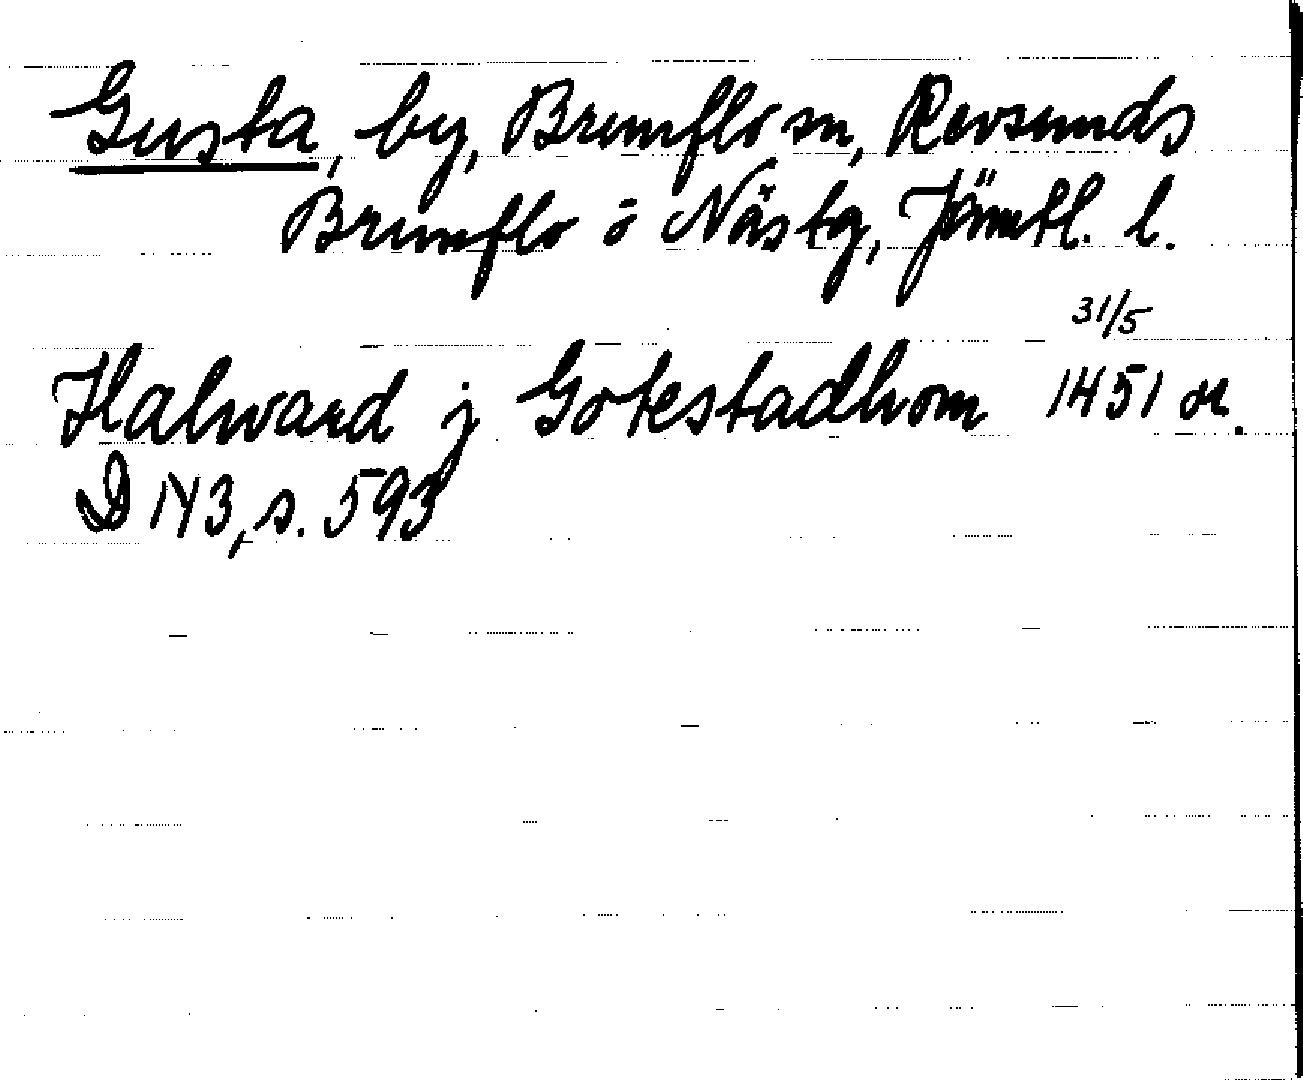 Gusta, by, Brunflo sn, Revsunds
Brunflo o Näs tg, Jämtl. l.
31/5
Halward j Gotestadhom 1451 or.
D 143, s. 593